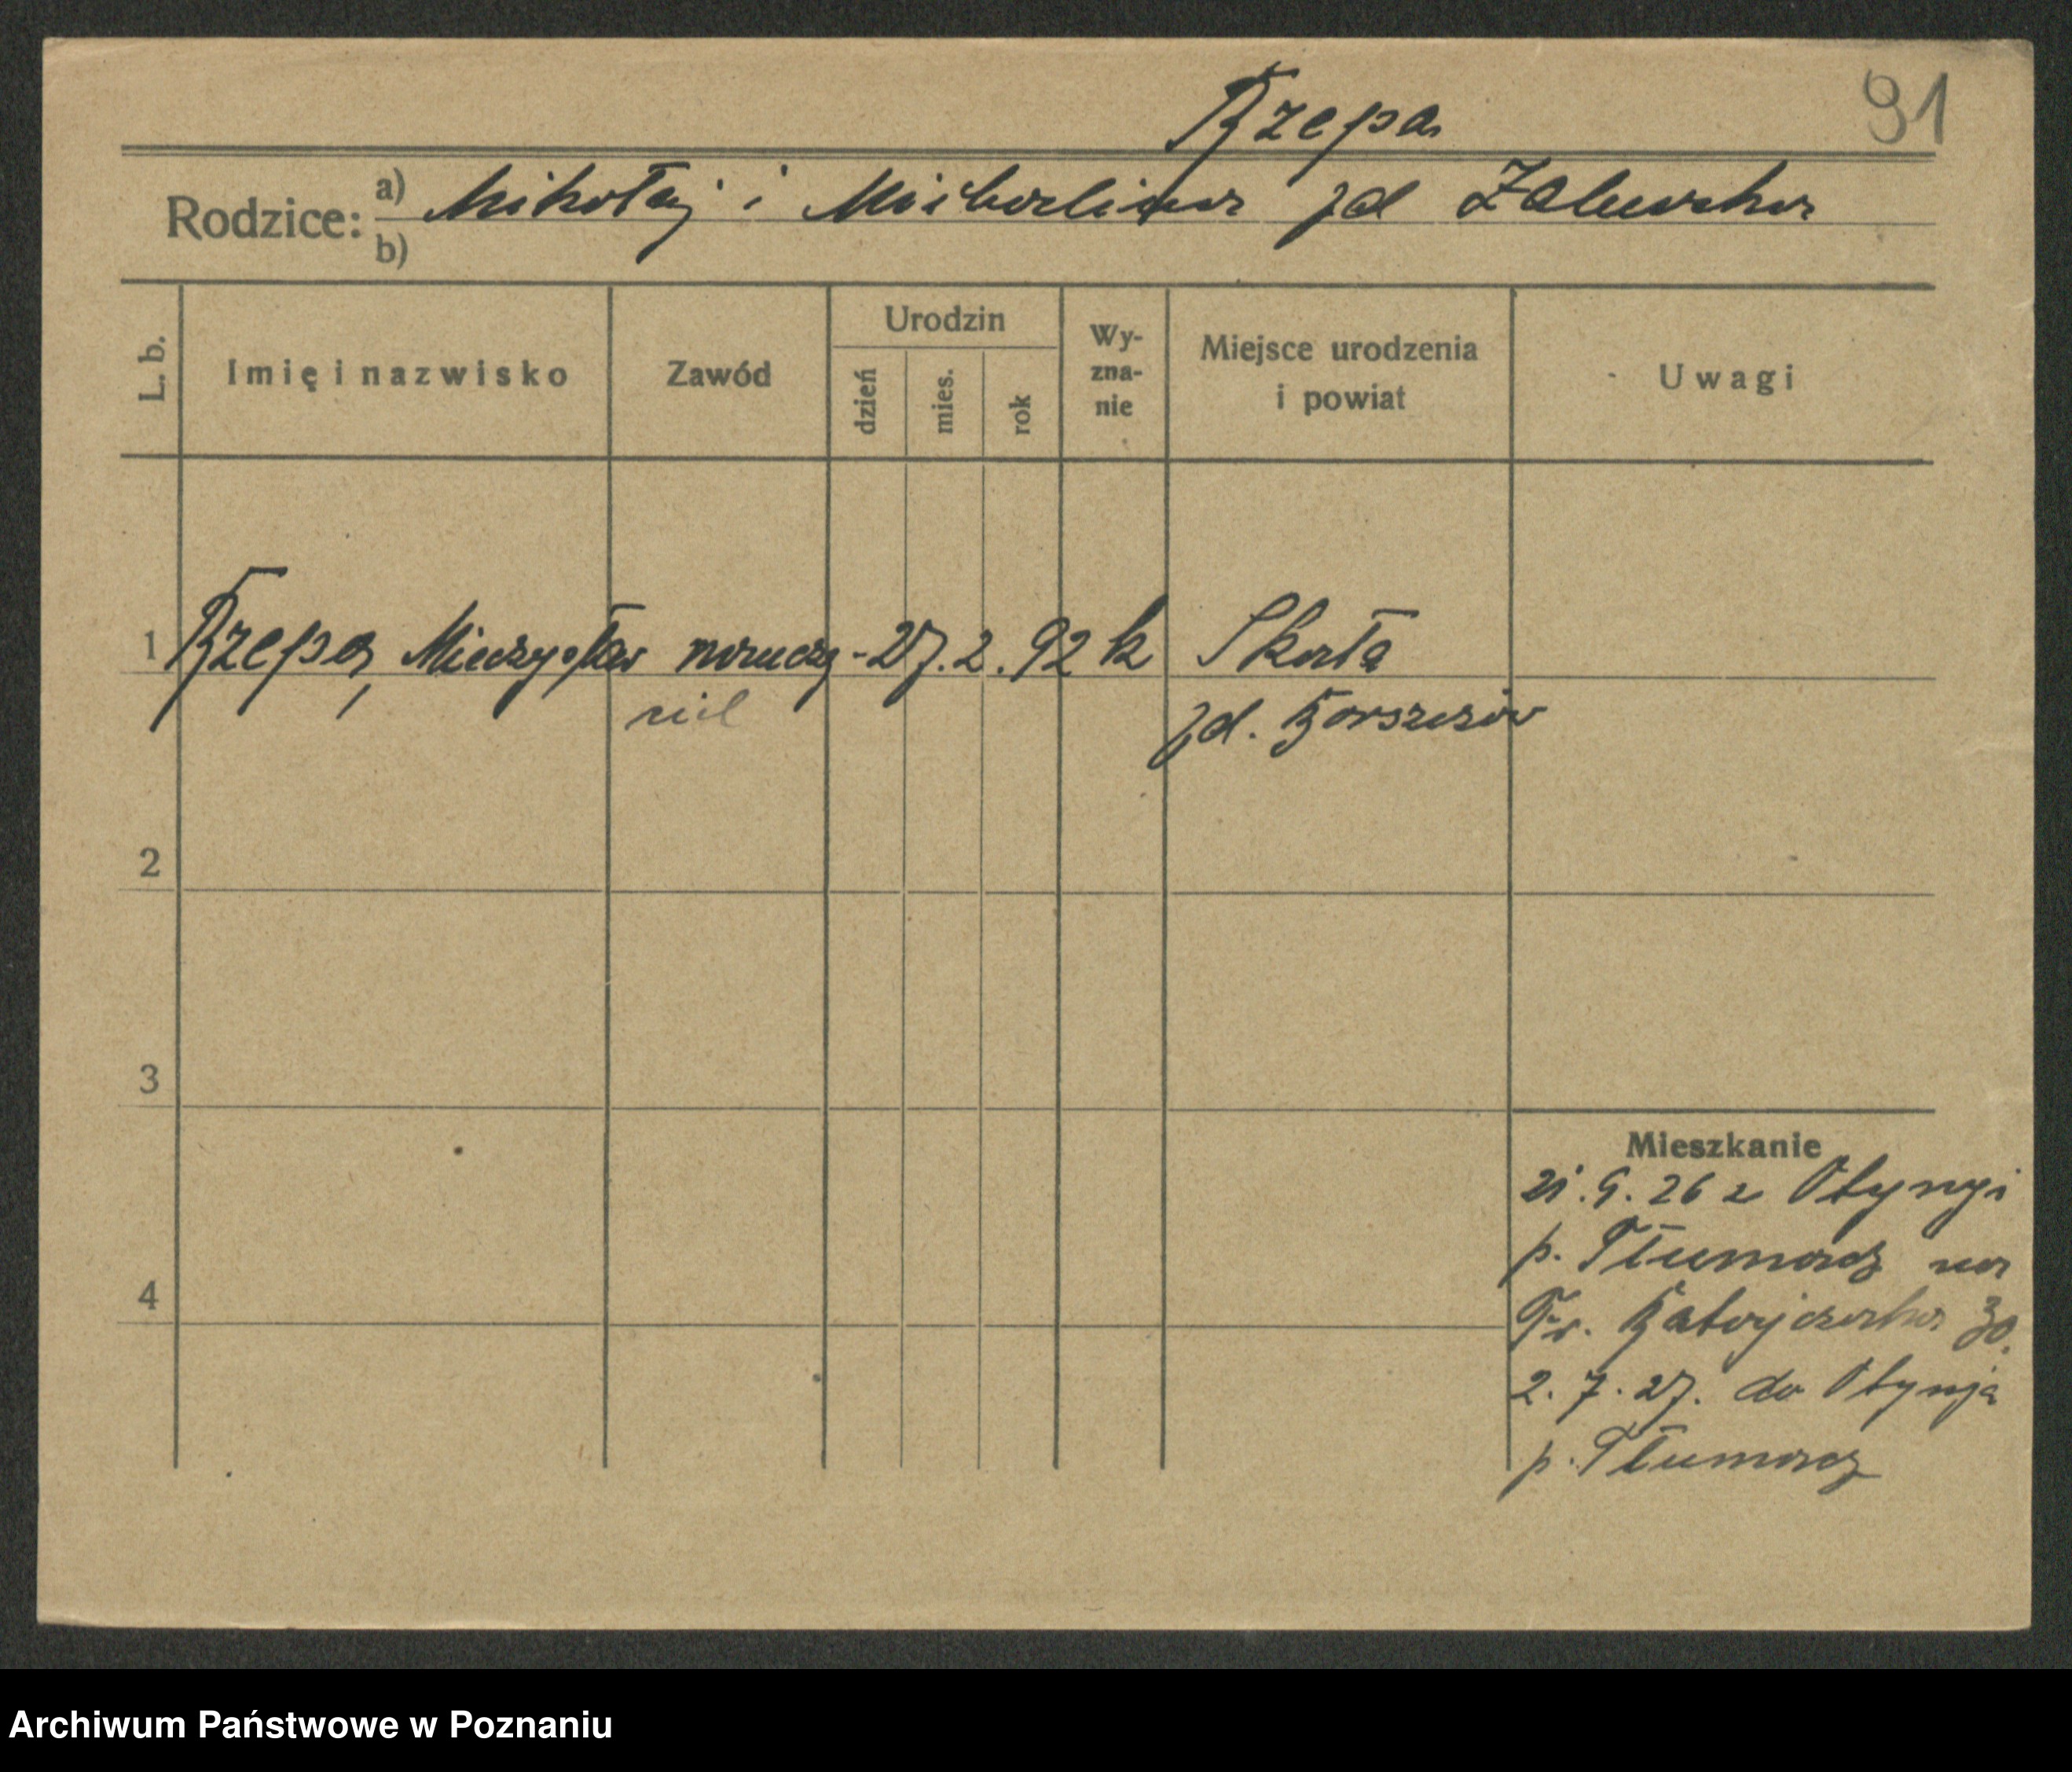 Rzepa 91
Rodzice: a) Mikołaj i Michalina zd Zaleuska
b)
L. b. Imię i nazwisko Zawód Urodzin dzień mies. rok Wy- zna- nie Miejsce urodzenia i powiat Uwagi
1 Rzepa, Mieczysław nauczy- 27. 2. 92 k Skała
ciel zd. Borszczów
2
3
Mieszkanie
21. 9. 26 z Otynyi
p. Tłumacz na
4
Fr. Ratajczaka 30.
2. 7. 27. do Otynja
p. Tłumacz
Archiwum Państwowe w Poznaniu